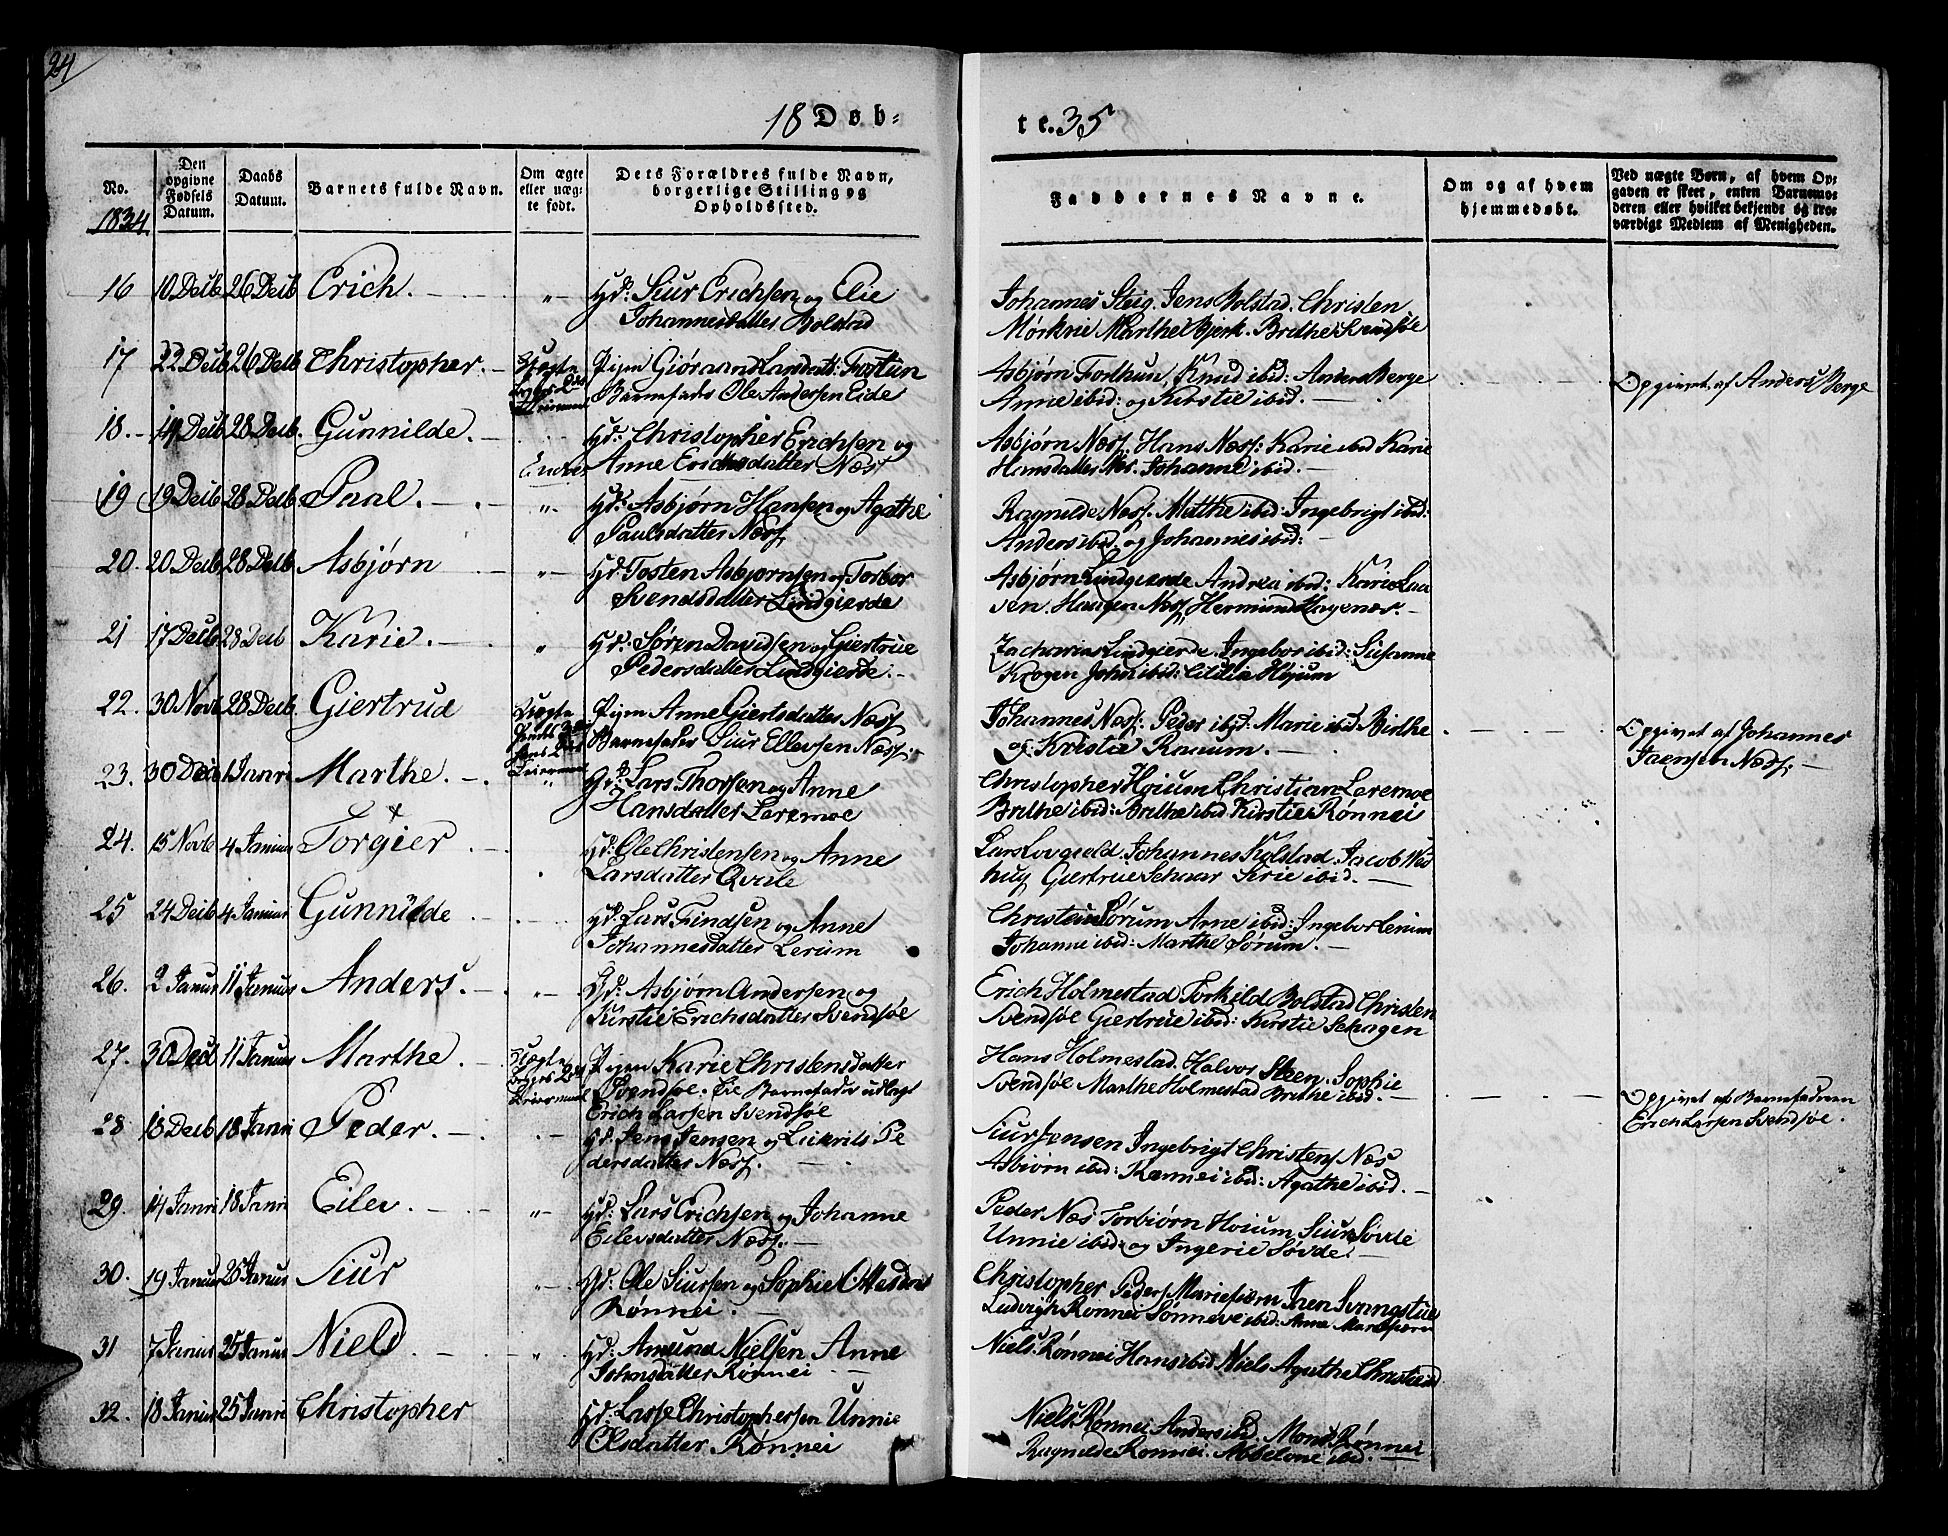 24
18 Døb-
te. 35
No.
1834.
Den opgivne Fødsels Datum.
Daabs Datum.
Barnets fulde Navn.
Om ægte eller uægte født.
Dets Forældres fulde Navn, borgerlige Stilling og Opholdssted.
Faddernes Navne.
Om og af hvem hjemmedøbt.
Ved uægte Børn, af hvem Opgaven er skeet, enten Barnemoderen eller hvilket bekjendt og troværdigt Medlem af Menigheden.
16 10 Decb 26 Decb Erich. - " - Gd: Siur Erichsen og Elie
Johannesdatter Bolstad
Johannes Steig. Jens Bolstad. Christen
Mørkrie Marthe Bjerk. Brithe Svendsøe
17 22 Decb 26 Decb Christopher. - Uægte Pigen Giøraand Larsdatt: Fostun
Barnefader Ole Andersen Eide
Asbjørn Forthun, Knud ibid: Anders Berge
Anne ibid: og Kirstie ibid. -
Opgivet af Anders Berge
18. - 14 Decb 28 Decb. Gunnilde. - Gd: Christopher Erichsen og
Anne Erichsdatter Næss
Asbjørn Næss. Hans Næss: Karie ibid Karie
Hansdatter Næs. Johanne ibid. -
19 19 Decb 28 Decb Paal. - " - Gd: Asbjørn Hansen og Agathe
Paulsdatter Næss
Ragnilde Næss. Matthe ibid: Ingebrigt ibid:
Anders ibid. og Johannes ibid: -
20. 20 Decb 28 Decb Asbjørn - " - Gd: Tosten Asbjørnsen og Torbor
Svendsdatter Lindgierde
Asbjørn Lindgierde Andrea ibid: Karie Lau
sen. Haagen Næss Hermund Hagenæs. -
21 17 Decb 28 Decb Karie. - " Gd: Søren Davidsen og Giertrue
Pedersdatter Lindgierde. -
Zacharias Lindgierde. Ingebor ibid: Susanne
Krogen John ibid: Cicilia Høyum
22. 30 Novb 28 Decb. Giertrud Uægte Pigen Anne Giertsdatter Næss
Barnefader Siur Ellevsen Næss. -
Johannes Næss: Peder ibid: Marie ibid Birthe
og Kristie Raaum. -
Opgivet af Johannes
Jaensen Næss. -
23. 30 Decb 1 Janri Marthe. - " Gd: Lars Thorsen og Anne
Hansdatter Leremoe
Christopher Høium Christian Leremoe
Brithe ibid: Brithe ibid Kirstie Rønnei
24. 15 Novb 4 Januar Torgier - Gd: Ole Christensen og Anne
Larsdatter Qvale
Lars Lovgield. Johannes Kolstad. Jacob
Giertrue Schaar Sirie ibid. -
25 24 Decb 4 Januar Gunnilde - Gd: Lars Findsen og Anne
Johannesdatter Lerum
Christen Sørum Anne ibid: Ingebor Lerum
Johanne ibid: Marthe Sørum. -
26. 2 Januar 11 Januar Anders. - " - Gd: Asbjørn Andersen og
Kirstie Erichsdatter Svendsøe
Erich Holmestad Torkild Bolstad Christen
Svendsøe Giertrue ibid: Kirstie
27. 30 Decb 11 Januar Marthe. - Uægte Pigen Karie Christensdatter
Svendsøe. Barnefader udlagt
Erich Larsen Svendsøe
Hans Holmestad. Halvor Steen. Sophie
Svendsøe Marthe Holmestad Brithe ibid. -
Opgivet af Barnefaderen
Erich Larsen Svendsøe.
28 18 Decb 18 Janri Peder. - Gd: Jens Jensen og Pe
dersdatter Næss. -
Siur Jensen Ingebrigt Christens Næs
Asbiørn ibid: ibid: Agathe ibid. -
29. 14 Janri 18 Janri Eilev. - " - Gd: Lars Erichsen og Johanne
Eilevsdatter Næss. -
Peder Næs Torbiørn Høium, Siur Søvde
Unnie ibid: og Ingerie Søvde. -
30. 19 Januar 25 Januar Siur " - Gd: Ole Siursen og Sophie
Rønnei. -
Christopher Peders
Ludvigh Rønnei Sønneve ibid: Anna
31 7 Januar 25 Januar Niels - " Gd: Amund Nielsen Anne
Johnsdatter Rønnei -
Niels Rønnei Hans ibid Niels Agathe
32. 18 Januar 25 Janri Christopher Gd: Lasse Christophersen Unnie
Olsdatter Rønnei
Niels Rønnei Anders ibid. Mons Rønnei
Ragnilde Rønnei. Abbelone ibid. -